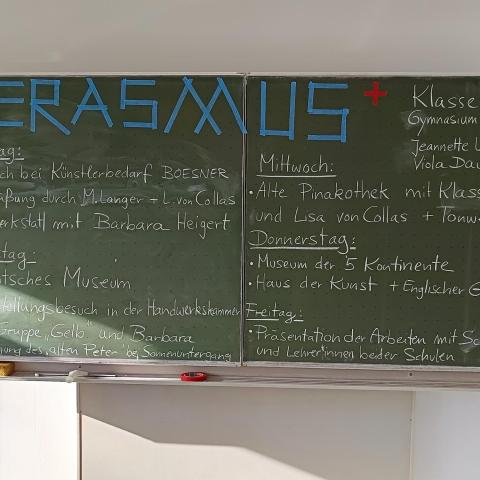 ERASMUS+
ag:
ch bei Künstlerbedarf BOESNER
aßung durch M.Langer + L.von Collas
erkstatt mit Barbara Heigert
tag
tsches Museum
tellungsbesuch in der Handwerkskammer
Gruppe „Gelb" und Barbara
ung des „alten Peter" bei Sonnenuntergang
Klasse
Gymnasium
Jeannette
Viola Dau
Mittwoch:
• Alte Pinakothek mit Klass
und Lisa von Collas + Tonw
Donnerstag:
• Museum der 5 Kontinente
• Haus der Kunst + Englischer G
Freitag:
• Präsentation der Arbeiten mit Sc
und Lehrer*innen beider Schulen